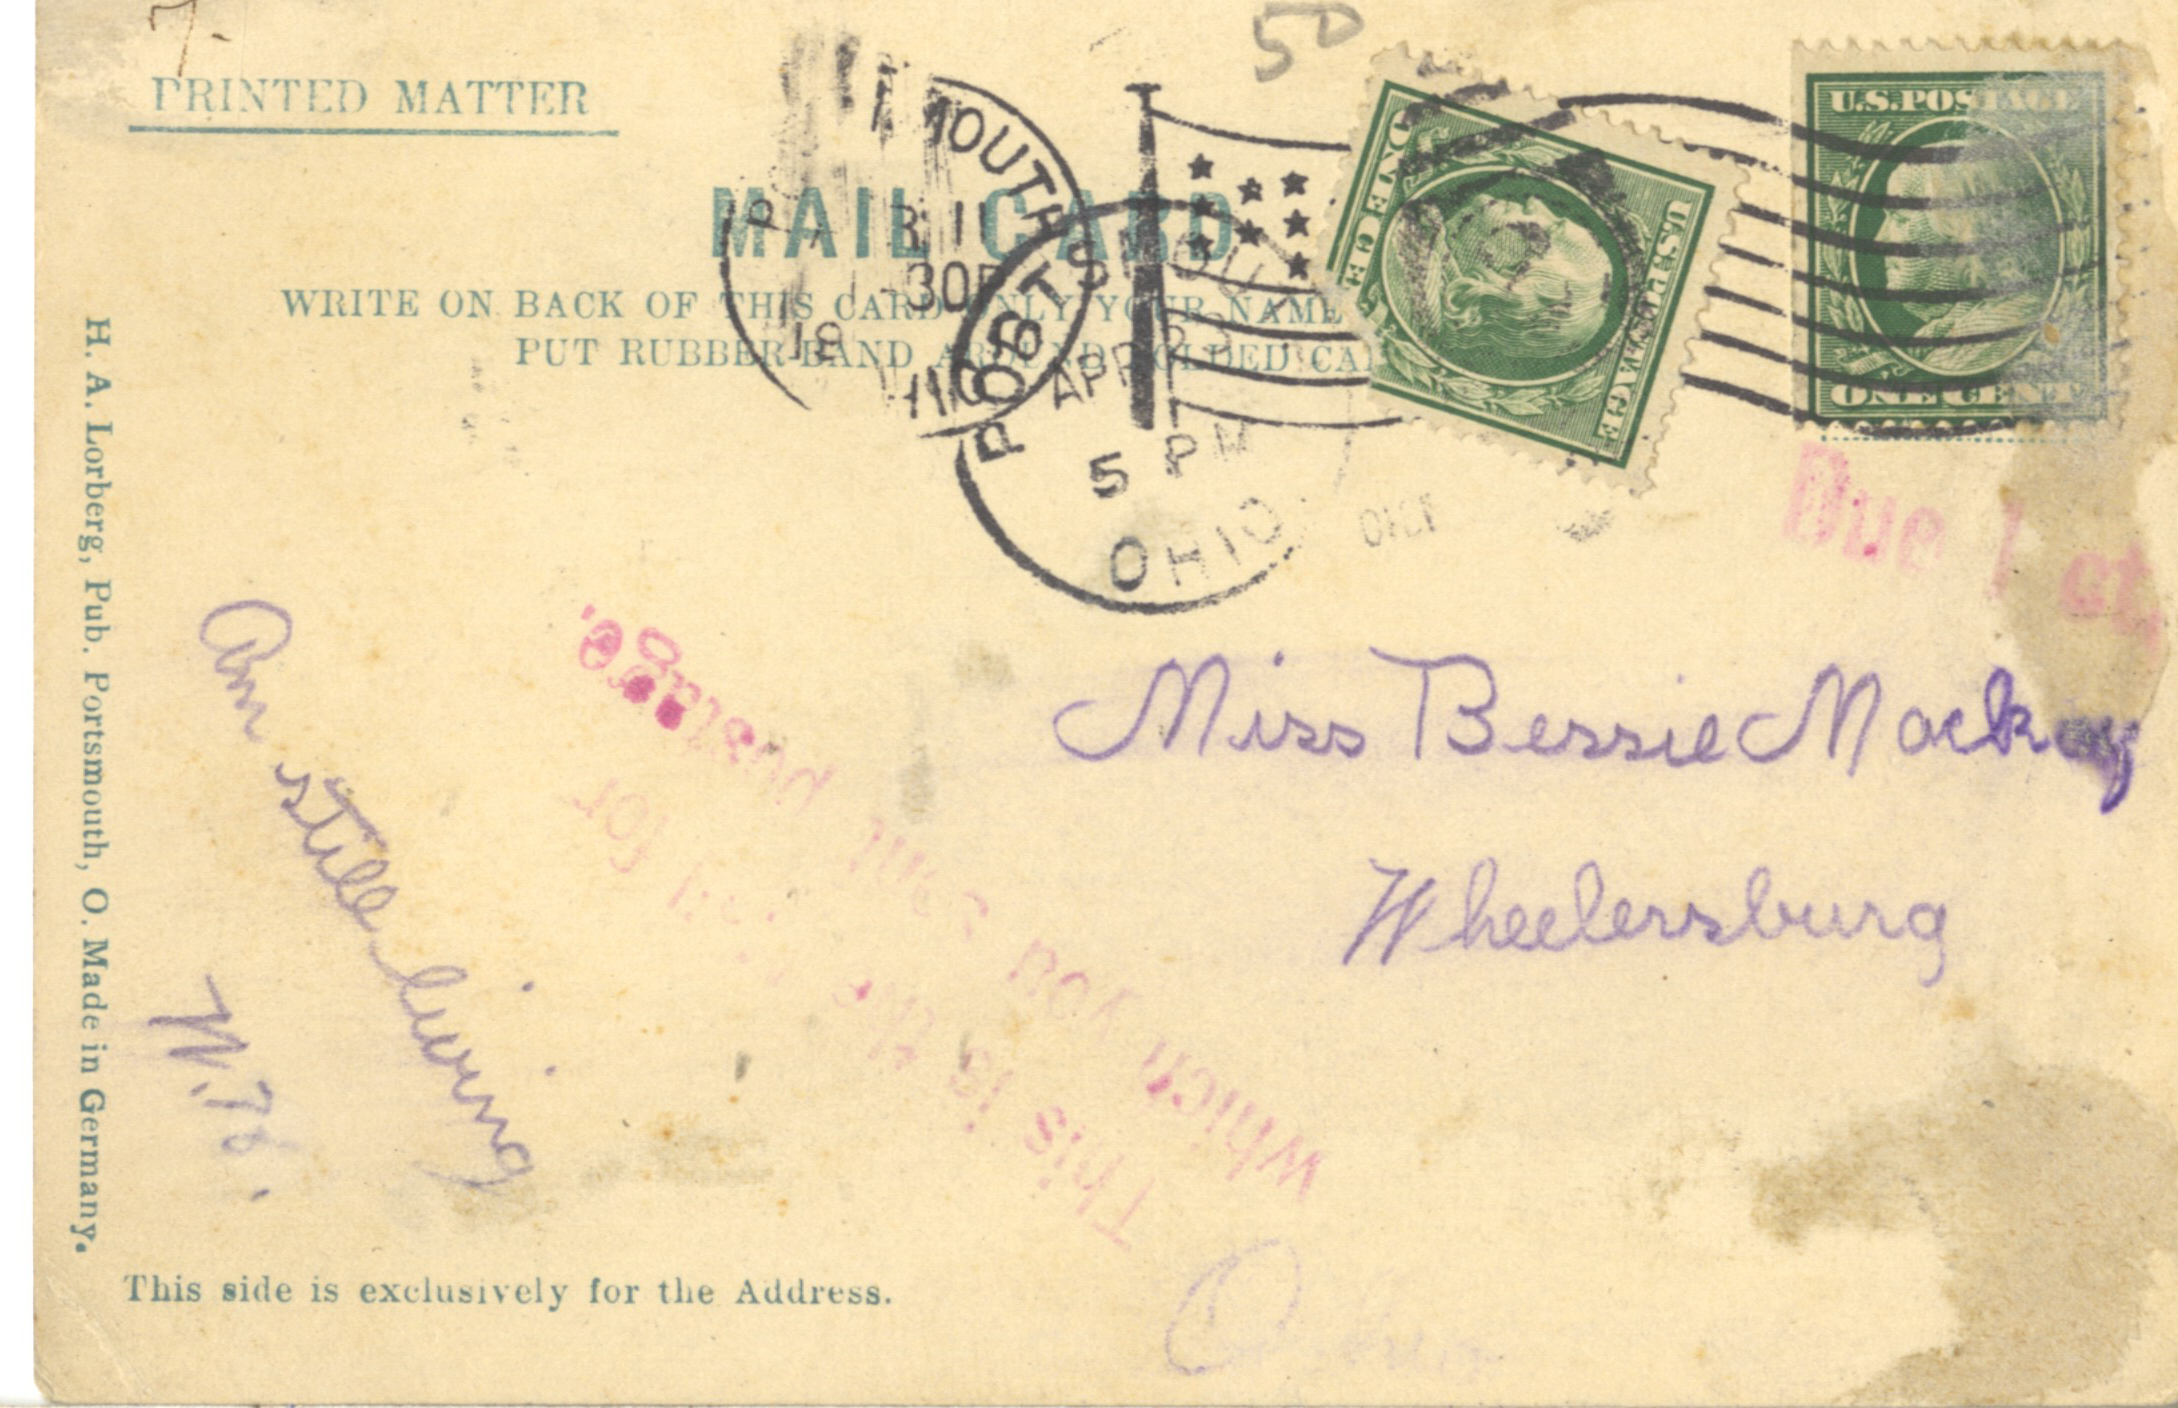 PRINTED MATTER
50
MAIL CARD
WRITE ON BACK OF THIS CARD ONLY YOUR NAME
PUT RUBBER BAND AROUND FOLDED CA
MOUTH
30P
PORTSMOUTH
APR
5 PM
OHIO
U.S. POSTAGE
ONE CENT
U.S. POSTAGE
ONE CENT
Due 1 ct.
H. A. Lorberg, Pub. Portsmouth, O. Made in Germany.
Am still living
Miss Bessie Mackoy
Wheelersburg
Ohio
This is the for
which you sent postage.
This side is exclusively for the Address.